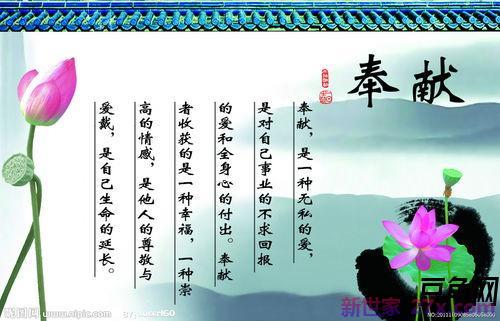 奉献
奉献，是一种无私的爱，
是对自己事业的不求回报
的爱和全身心的付出。奉献
者收获的是一种幸福，一种崇
高的情感，是他人的尊敬与
爱戴，是自己生命的延长。
昵图网 www.nipic.com
新世家 27x.com